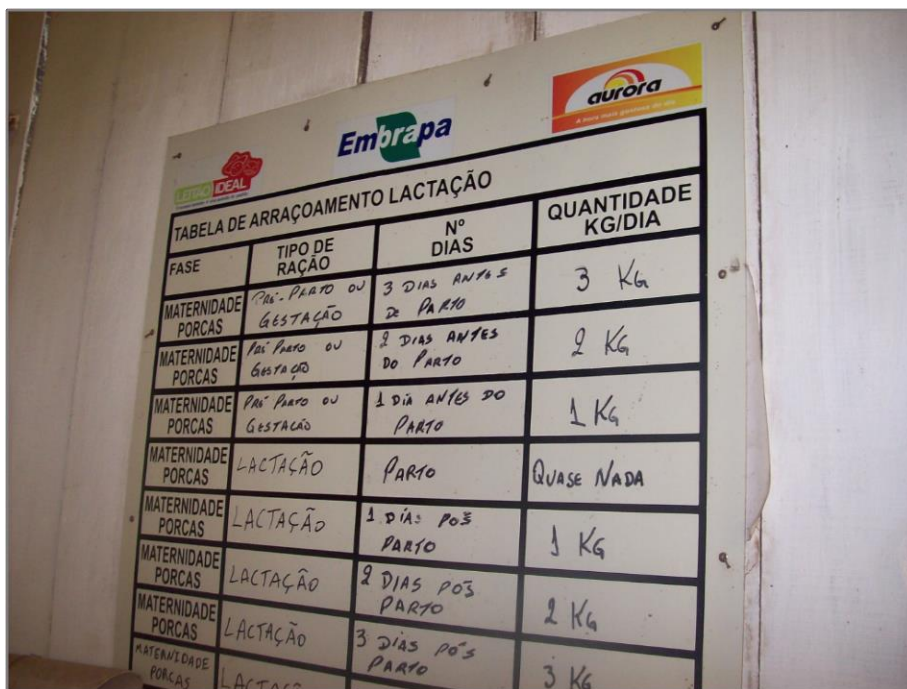 LEITÃO IDEAL
Embrapa
aurora
TABELA DE ARRAÇOAMENTO LACTAÇÃO
FASE
TIPO DE
RAÇÃO
Nº
DIAS
QUANTIDADE
KG/DIA
MATERNIDADE
PORCAS
PRÉ-PARTO OU
GESTAÇÃO
3 DIAS ANTES
DE PARTO
3 KG
MATERNIDADE
PORCAS
PRÉ PARTO OU
GESTAÇÃO
2 DIAS ANTES
DO PARTO
2 KG
MATERNIDADE
PORCAS
PRÉ PARTO OU
GESTACÃO
1 DIA ANTES DO
PARTO
1 KG
MATERNIDADE
PORCAS
LACTAÇÃO
PARTO
QUASE NADA
MATERNIDADE
PORCAS
LACTAÇÃO
1 DIAS PÓS
PARTO
1 KG
MATERNIDADE
PORCAS
LACTAÇÃO
2 DIAS PÓS
PARTO
2 KG
MATERNIDADE
PORCAS
LACTAÇÃO
3 DIAS PÓS
PARTO
3 KG
MATERNIDADE
PORCAS
LACTAÇÃO